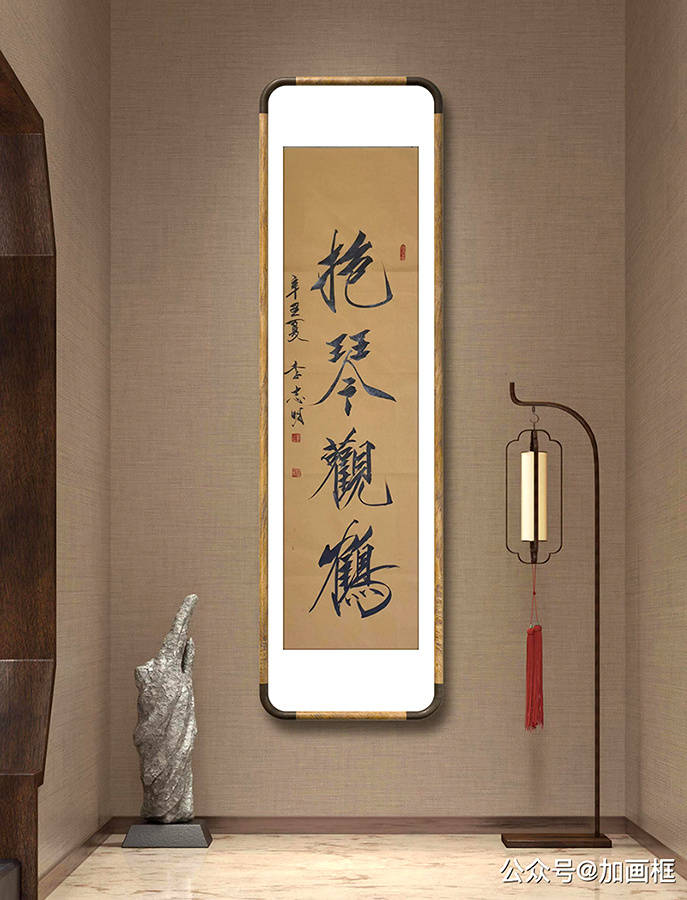 抱琴觀鶴
辛丑夏 李志明
公众号@加画框